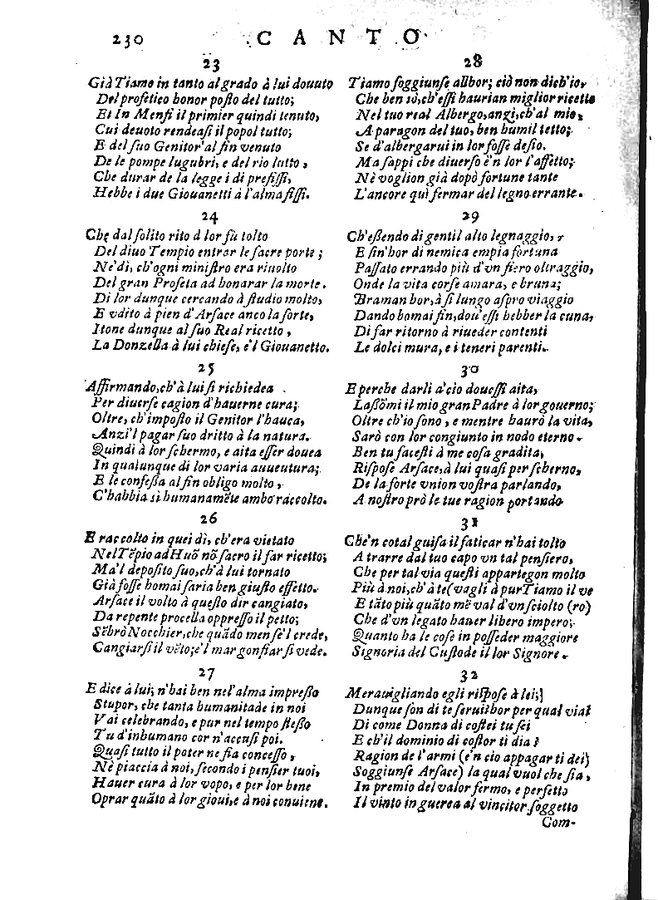 230 CANTO
23
Già Tiamo in tanto al grado à lui douuto
Del profetico honor posto del tutto;
Et In Menfi il primier quindi tenuto,
Cui deuoto rendeasi il popol tutto;
E del suo Genitor' al fin venuto
De le pompe lugubri, e del rio lutto,
Che durar de la legge i dì prefissi,
Hebbe i due Giouanetti à l'alma fissi.
24
Chę dal solito rito à lor fù tolto
Del diuo Tempio entrar le sacre porte;
Ne'dì, ch'ogni ministro era riuolto
Del gran Profeta ad bonarar la morte.
Di lor dunque cercando à studio molto,
E vdito à pien d'Arsace anco la sorte,
Itone dunque al suo Real ricetto,
La Donzella à lui chiese, e'l Giouanetto.
25
Affirmando, ch'à lui si richiedea
Per diuerse cagion d'hauerne cura;
Oltre, ch'imposto il Genitor l'hauea,
Anzi'l pagar suo dritto à la natura.
Quindi à lor schermo, e aita esser douea
In qualunque di lor varia auueutura;
E le confessa al fin obligo molto,
C'habbia sì humanamẽte ambo raccolto.
26
E raccolto in quei dì, ch'era vietato
Nel Tẽpio ad Huõ nõ sacro il far ricetto;
Ma'l deposito suo, ch'à lui tornato
Già fosse homai saria ben giusto effetto.
Arsace il volto à questo dir cangiato,
Da repente procella oppresso il petto;
Sẽbrò Nocchier, che quãdo men se'l crede,
Cangiarsi il vẽto; e'l mar gonfiar si vede.
27
E dice à lui; n'hai ben nel'alma impresso
Stupor, che tanta humanitade in noi
Vai celebrando, e pur nel tempo stesso
Tu d'inhumano cor n'accusi poi.
Quasi tutto il poter ne sia concesso,
Nè piaccia à noi, secondo i pensier tuoi,
Hauer cura à lor vopo, e per lor bene
Oprar quãto à lor gioui, e à noi conuiene.
28
Tiamo soggiunse allhor; ciò non dich'io,
Che ben sò, ch'essi haurian miglior ricetto
Nel tuo real Albergo, anzi, ch'al mio,
A paragon del tuo, ben humil tetto;
Se d'albergarui in lor fosse desio.
Ma sappi che diuerso è'n lor l'affetto;
Nè voglion già dopò fortune tante
L'ancore quì fermar del legno errante.
29
Ch'essendo di gentil alto legnaggio,
E sin'hor di nemica empia fortuna
Passato errando più d'vn fiero oltraggio,
Onde la vita corse amara, e bruna;
Braman hor, à sì lungo aspro viaggio
Dando homai fin, dou'essi hebber la cuna,
Di far ritorno à riueder contenti
Le dolci mura, e i teneri parenti.
30
E perche darli à cio douessi aita,
Lassõmi il mio gran Padre à lor gouerno;
Oltre ch'io sono, e mentre haurò la vita,
Sarò con lor congiunto in nodo eterno.
Ben tu facesti à me cosa gradita,
Rispose Arsace, à lui quasi per scherno,
De la forte vnion vostra parlando,
A nostro prò le tue ragion portando
31
Che'n cotal guisa il faticar n'hai tolto
A trarre dal tuo capo vn tal pensiero,
Che per tal via questi appartegon molto
Più à noi, ch'à te (vagli à pur Tiamo il ve
E tãto più quãto mẽ val d'vn sciolto (ro)
Che d'vn legato hauer libero impero;
Quanto ha le cose in posseder maggiore
Signoria del Custode il lor Signore.
32
Merauigliando egli rispose à lei;
Dunque son di te seruithor per qual via?
Di come Donna di costei tu sei
E ch'il dominio di costor ti dia?
Ragion de l'armi (e'n cio appagar ti dei)
Soggiunse Arsace) la qual vuol che sia,
In premio del valor fermo, e perfetto
Il vinto in guerea al vincitor soggetto
Com-